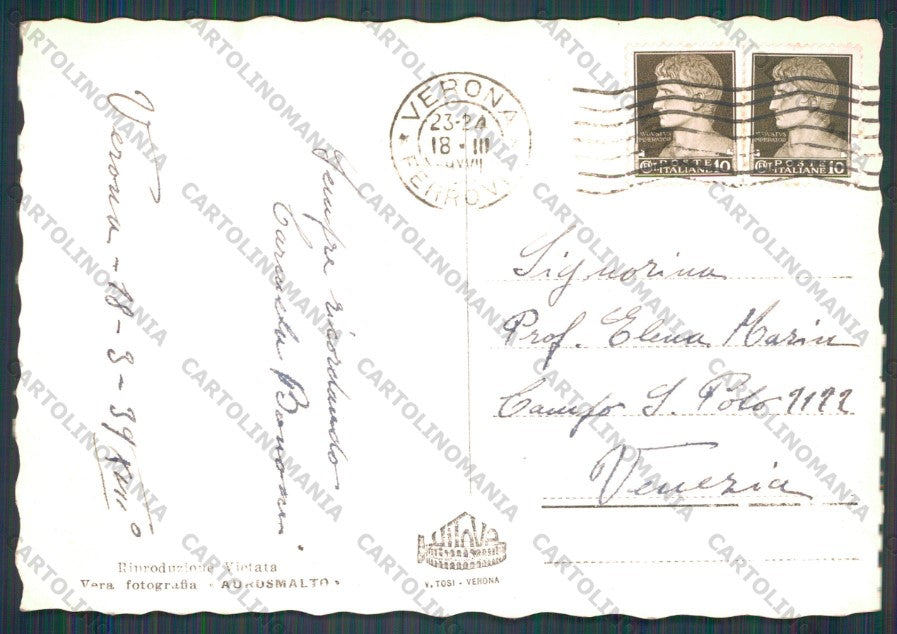 Verona - 18 - 3 - 39 XVII°
Sempre ricordando
Bonomi
Riproduzione Vietata
Vera fotografia "AUROSMALTO"
VERONA
23-24
18 · III
FERROVIA
POSTE
ITALIANE 10
POSTE
ITALIANE 10
Signorina
Prof. Elena Marin
Campo S. Polo 2122
Venezia
V. TOSI - VERONA
CARTOLINOMANIA